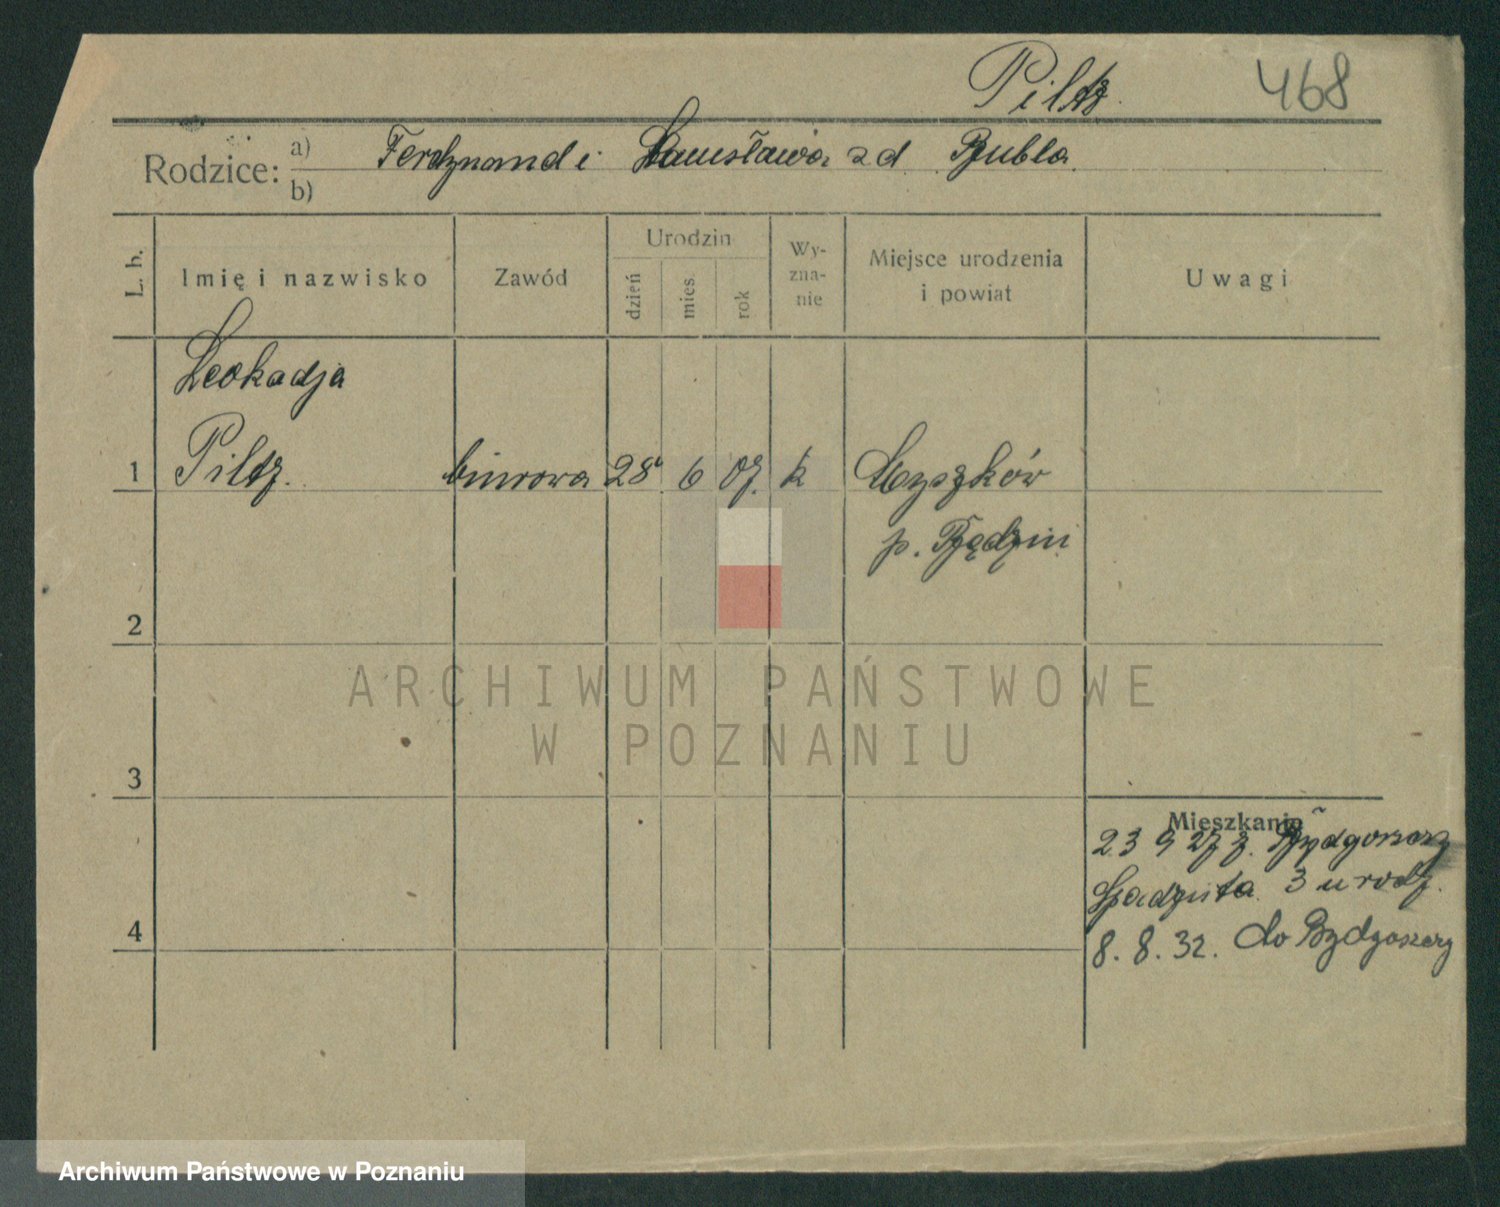 Piltz 468
Rodzice: a) Ferdynand i Stanisława zd Bubla
b)
L. b. Imię i nazwisko Zawód Urodzin dzień mies. rok Wy-zna-nie Miejsce urodzenia i powiat Uwagi
Leokadja
1 Piltz. biurowa 28 6 07. k Myszków
p. Będzin
2
ARCHIWUM PAŃSTWOWE
W POZNANIU
3
Mieszkanie
23 9 27 z. Bydgoszcz
3 u rodz.
4 8. 8. 32. do Bydgoszczy
Archiwum Państwowe w Poznaniu